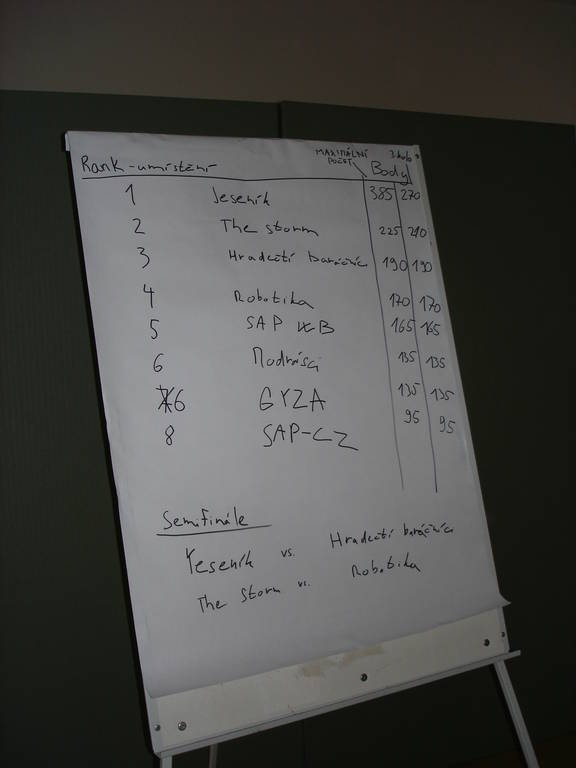 Rank-umístění MAXIMÁLNÍ POČET Body 3.kolo
1 Jeseník 385 270
2 The storm 225 210
3 Hradečtí 190 190
4 Robotika 170 170
5 SAP 165 165
6 Modrásci 135 135
6 GYZA 135 135
8 SAP-CZ 95 95
Semifinále
Yeseník vs. Hradečtí
The storm vs. Robotika